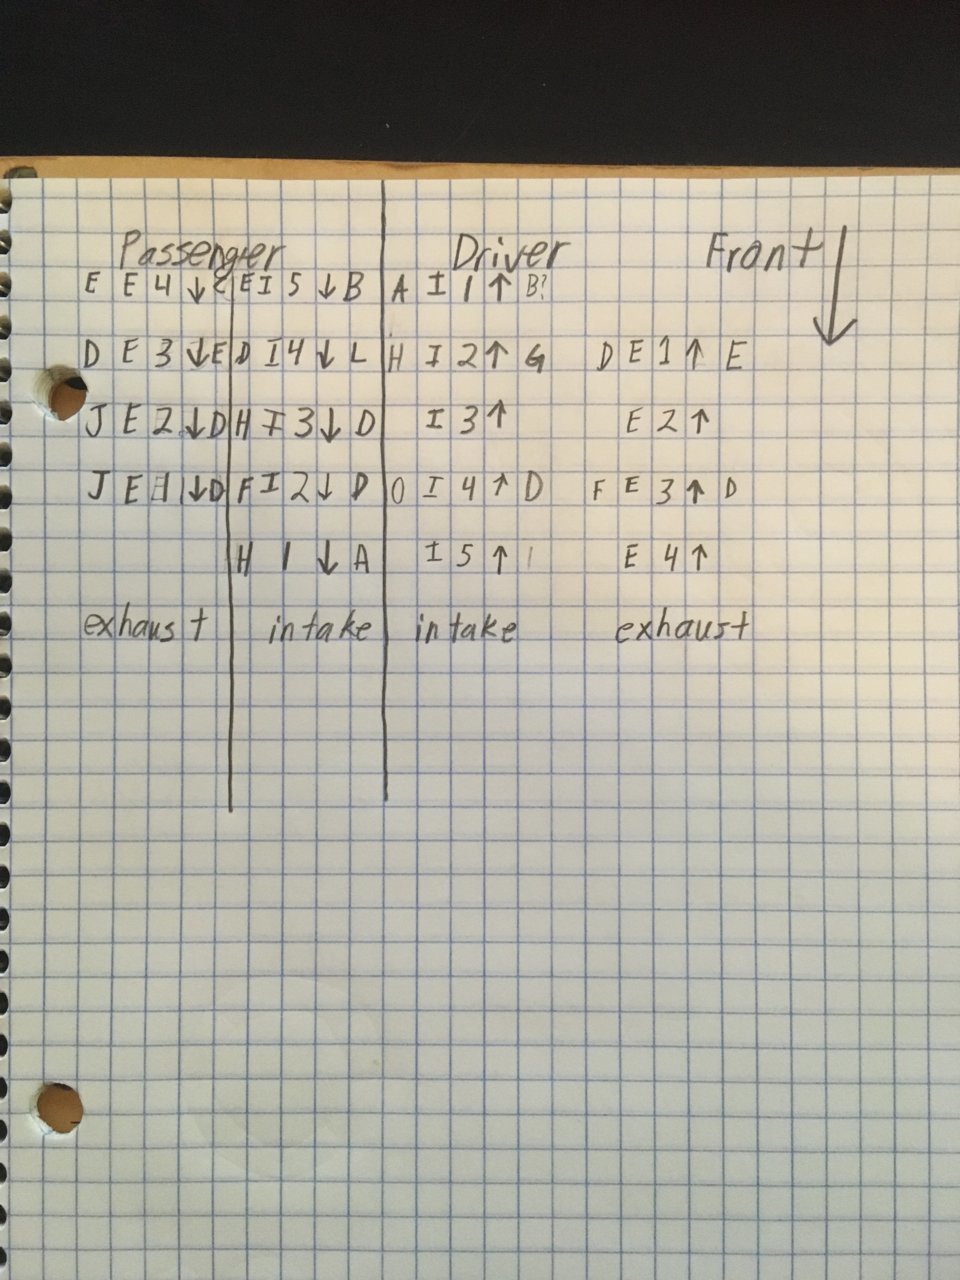 Passenger Driver Front ↓
E E 4 ↓ E I 5 ↓ B A I 1 ↑ B?
D E 3 ↓ E D I 4 ↓ L H I 2 ↑ G D E 1 ↑ E
J E 2 ↓ D H I 3 ↓ D I 3 ↑ E 2 ↑
J E 1 ↓ D F I 2 ↓ D O I 4 ↑ D F E 3 ↑ D
H 1 ↓ A I 5 ↑ E 4 ↑
exhaust intake intake exhaust